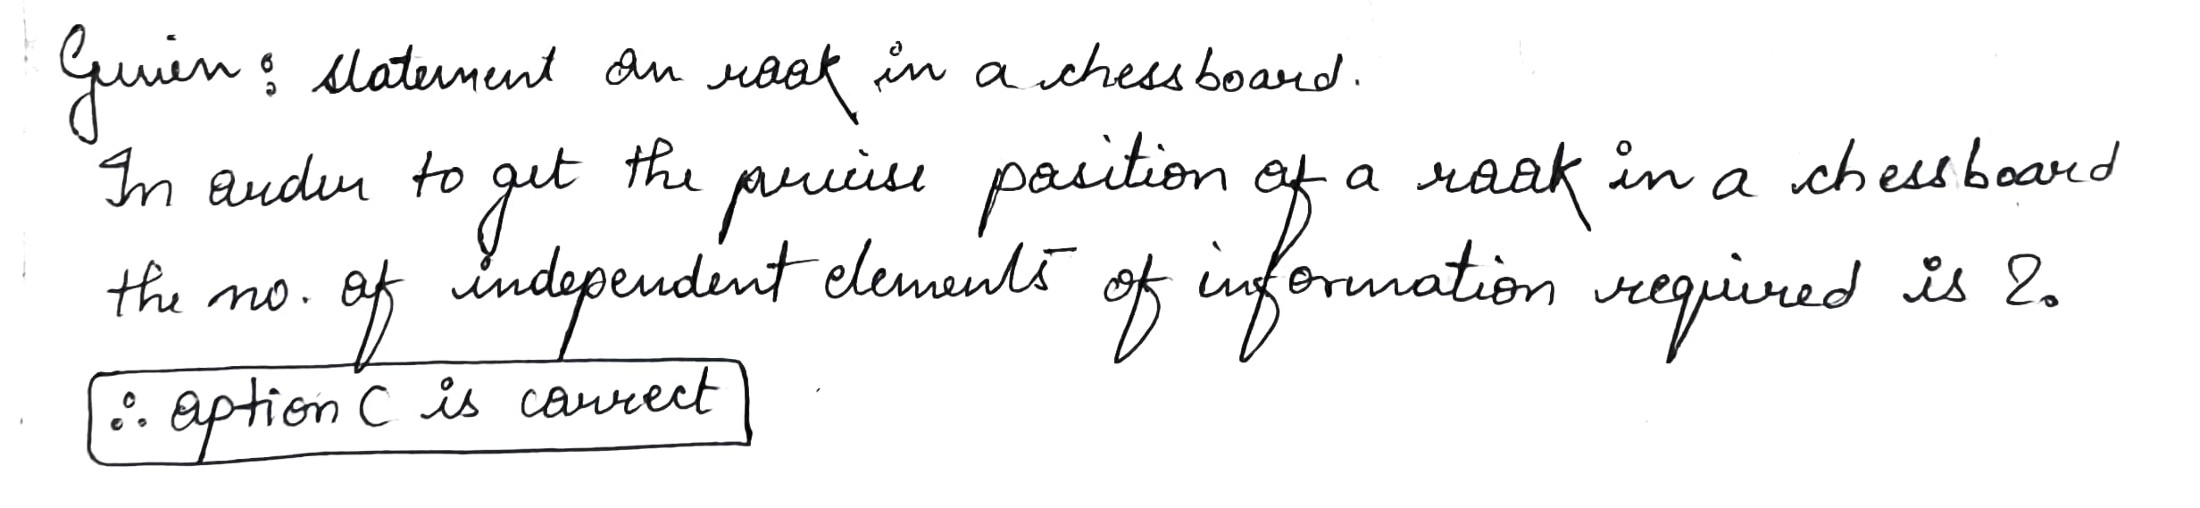 Given : statement on rook in a chess board.
In order to get the precise position of a rook in a chess board
the no. of independent elements of information required is 2.
∴ option C is correct